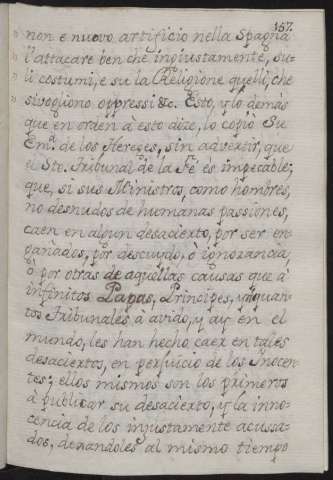 157.
" non e nuovo artificio nella Spagna
" l'attacare ben che ingiustamente, su-
" li costumi, e su la Religione quelli, che
" si vogliono oppressi &c. Esto, y lo demàs
que en orden à esto dize, lo copiò Su
Em.ª de los Hereges, sin advertir, que
el Sto. Tribunal de la Fé es impecable;
que, si sus Ministros, como hombres,
no desnudos de humanas passiones,
caen en algun desacierto, por ser en-
gañados, por descuydo, ò ignorancia,
ò por otras de aquellas causas que à
infinitos Papas, Principes, y à quan-
tos Tribunales à avido, y ay en el
mundo, les han hecho caer en tales
desaciertos, en perjuicio de los Inocen-
tes; ellos mismos son los primeros
à publicar su desacierto, y la inno-
cencia de los injustamente acussa-
dos, dexandoles al mismo tiempo